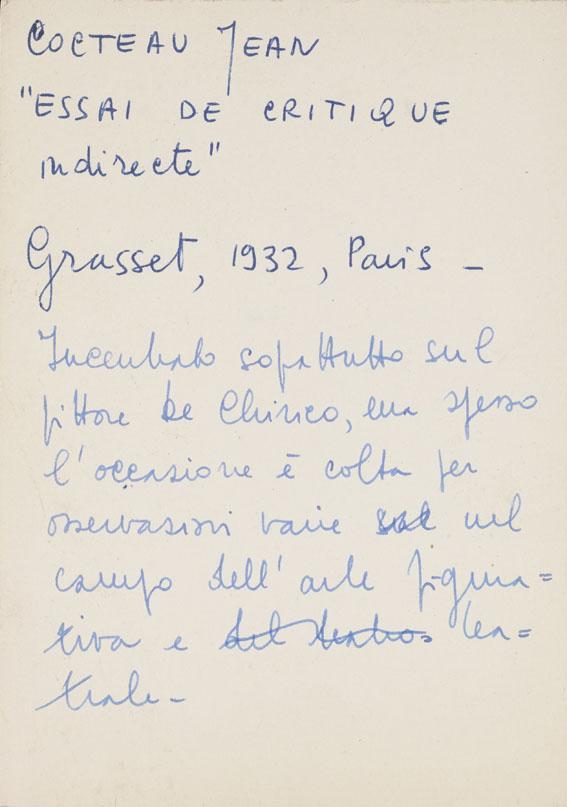 COCTEAU JEAN
"ESSAI DE CRITIQUE
indirecte"
Grasset, 1932, Paris -
Incentrato sopattutto sul
pittore De Chirico, ma spesso
l'occasione è colta per
osservazioni varie sul nel
campo dell'arte figura=
tiva e del teatro- tea=
trale-